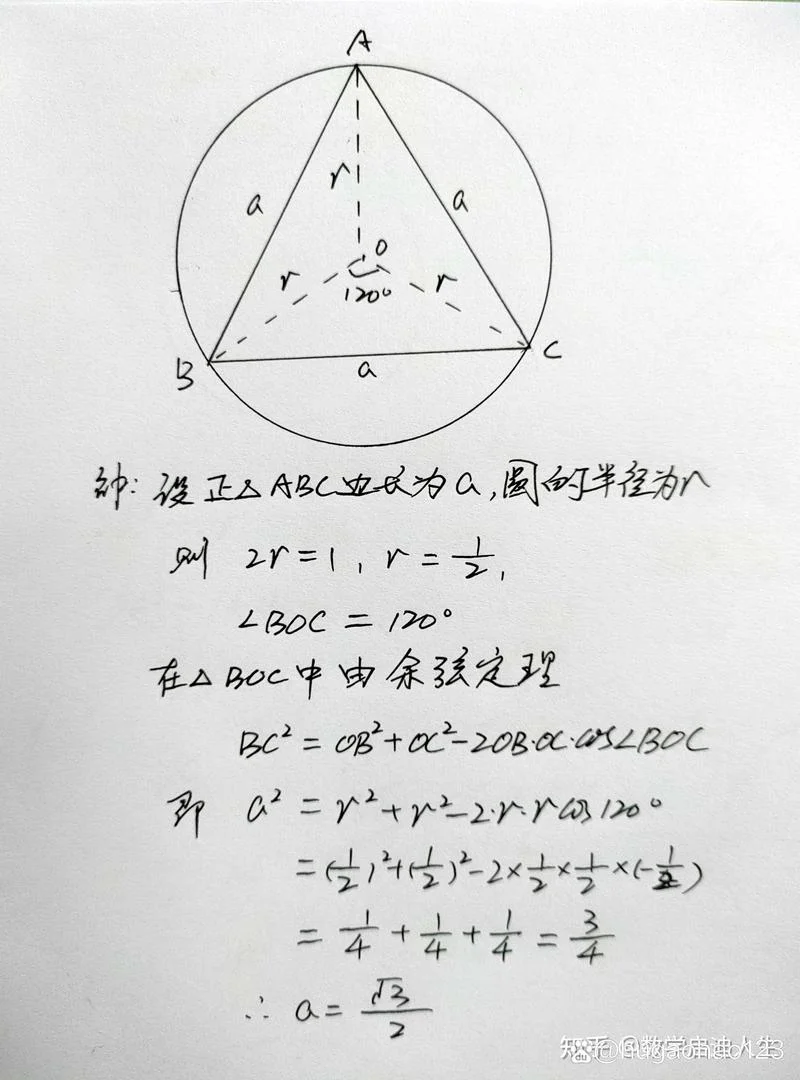 A
r
a
a
O
r
120°
r
B
a
C
解: 设正△ABC边长为a,圆的半径为r
则 2r=1, r=1/2,
∠BOC=120°
在△BOC中由余弦定理
BC²=OB²+OC²-2OB·OC·cos∠BOC
即 a²=r²+r²-2·r·r cos120°
=(1/2)²+(1/2)²-2×1/2×1/2×(-1/2)
=1/4+1/4+1/4=3/4
∴ a=√3/2
知乎